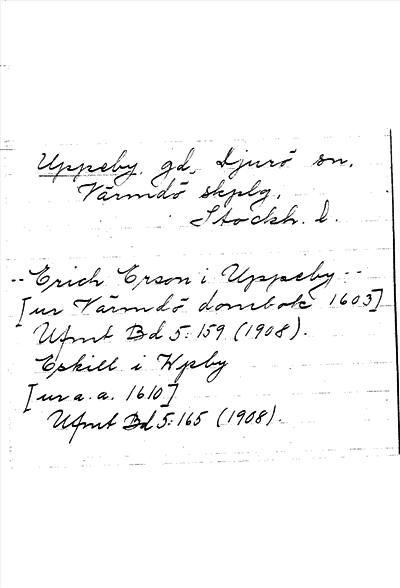 Uppeby, gd, Djurö sn,
Värmdö skplg,
Stockh. l.
-- Erich Erson i Uppeby --
[ur Värmdö dombok 1603]
Ufmt Bd 5:159 (1908).
Eskill i Wpby
[ur a.a. 1610]
Ufmt Bd 5:165 (1908).